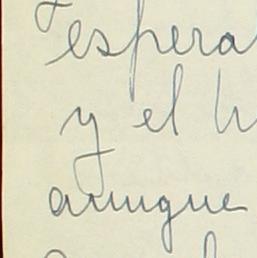 espera
y el
aunque